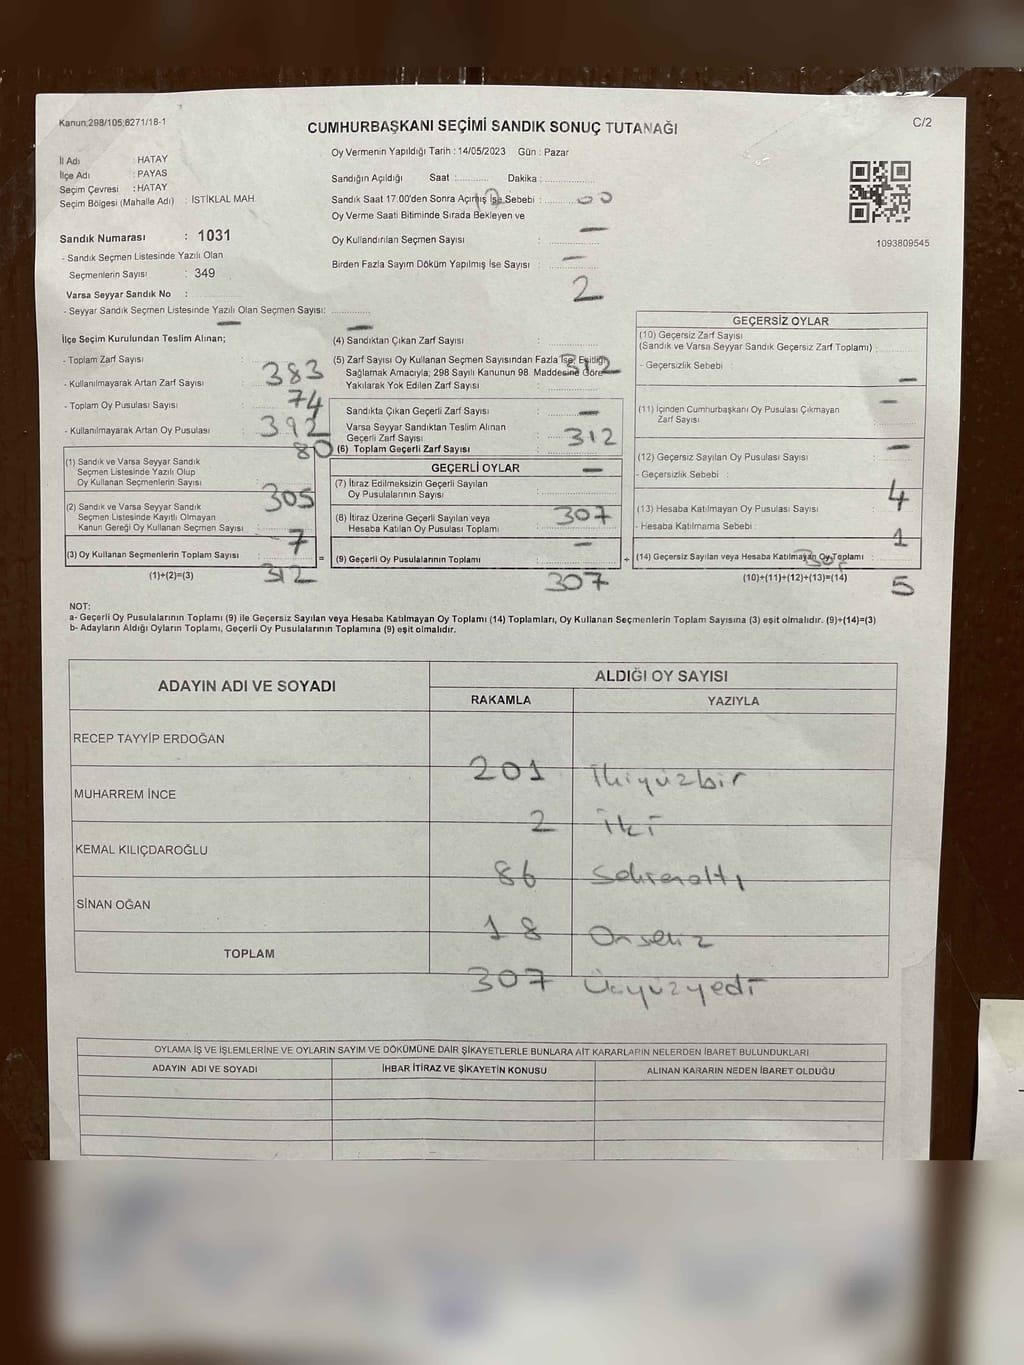 Kanun;298/105;6271/18-1
CUMHURBAŞKANI SEÇİMİ SANDIK SONUÇ TUTANAĞI
C/2
İl Adı : HATAY
İlçe Adı : PAYAS
Seçim Çevresi : HATAY
Seçim Bölgesi (Mahalle Adı) : İSTİKLAL MAH.
Sandık Numarası : 1031
- Sandık Seçmen Listesinde Yazılı Olan
Seçmenlerin Sayısı : 349
Varsa Seyyar Sandık No :
- Seyyar Sandık Seçmen Listesinde Yazılı Olan Seçmen Sayısı:
Oy Vermenin Yapıldığı Tarih : 14/05/2023 Gün : Pazar
Sandığın Açıldığı Saat : Dakika :
Sandık Saat 17.00'den Sonra Açılmış İse Sebebi : 00
Oy Verme Saati Bitiminde Sırada Bekleyen ve
Oy Kullandırılan Seçmen Sayısı : —
Birden Fazla Sayım Döküm Yapılmış İse Sayısı : —
2
1093809545
İlçe Seçim Kurulundan Teslim Alınan;
- Toplam Zarf Sayısı :
383
- Kullanılmayarak Artan Zarf Sayısı :
74
- Toplam Oy Pusulası Sayısı :
392
- Kullanılmayarak Artan Oy Pusulası :
80
(1) Sandık ve Varsa Seyyar Sandık
Seçmen Listesinde Yazılı Olup
Oy Kullanan Seçmenlerin Sayısı :
305
(2) Sandık ve Varsa Seyyar Sandık
Seçmen Listesinde Kayıtlı Olmayan
Kanun Gereği Oy Kullanan Seçmen Sayısı :
7
(3) Oy Kullanan Seçmenlerin Toplam Sayısı :
312
(1)+(2)=(3)
(4) Sandıktan Çıkan Zarf Sayısı :
312
(5) Zarf Sayısı Oy Kullanan Seçmen Sayısından Fazla İse, Eşitliği
Sağlamak Amacıyla; 298 Sayılı Kanunun 98. Maddesine Göre
Yakılarak Yok Edilen Zarf Sayısı :
—
Sandıkta Çıkan Geçerli Zarf Sayısı :
312
Varsa Seyyar Sandıktan Teslim Alınan
Geçerli Zarf Sayısı :
(6) Toplam Geçerli Zarf Sayısı :
—
GEÇERLİ OYLAR
(7) İtiraz Edilmeksizin Geçerli Sayılan
Oy Pusulalarının Sayısı :
307
(8) İtiraz Üzerine Geçerli Sayılan veya
Hesaba Katılan Oy Pusulası Toplamı :
—
(9) Geçerli Oy Pusulalarının Toplamı :
307
GEÇERSİZ OYLAR
(10) Geçersiz Zarf Sayısı
(Sandık ve Varsa Seyyar Sandık Geçersiz Zarf Toplamı) :
- Geçersizlik Sebebi :
—
(11) İçinden Cumhurbaşkanı Oy Pusulası Çıkmayan
Zarf Sayısı :
—
(12) Geçersiz Sayılan Oy Pusulası Sayısı :
- Geçersizlik Sebebi :
4
(13) Hesaba Katılmayan Oy Pusulası Sayısı :
- Hesaba Katılmama Sebebi :
1
(14) Geçersiz Sayılan veya Hesaba Katılmayan Oy Toplamı :
5
(10)+(11)+(12)+(13)=(14)
NOT:
a- Geçerli Oy Pusulalarının Toplamı (9) ile Geçersiz Sayılan veya Hesaba Katılmayan Oy Toplamı (14) Toplamları, Oy Kullanan Seçmenlerin Toplam Sayısına (3) eşit olmalıdır. (9)+(14)=(3)
b- Adayların Aldığı Oyların Toplamı, Geçerli Oy Pusulalarının Toplamına (9) eşit olmalıdır.
ADAYIN ADI VE SOYADI
ALDIĞI OY SAYISI
RAKAMLA YAZIYLA
RECEP TAYYİP ERDOĞAN
201 İkiyüzbir
MUHARREM İNCE
2 İki
KEMAL KILIÇDAROĞLU
86 Seksenaltı
SİNAN OĞAN
18 Onsekiz
TOPLAM
307 Üçyüzyedi
OYLAMA İŞ VE İŞLEMLERİNE VE OYLARIN SAYIM VE DÖKÜMÜNE DAİR ŞİKAYETLERLE BUNLARA AİT KARARLARIN NELERDEN İBARET BULUNDUKLARI
ADAYIN ADI VE SOYADI İHBAR İTİRAZ VE ŞİKAYETİN KONUSU ALINAN KARARIN NEDEN İBARET OLDUĞU